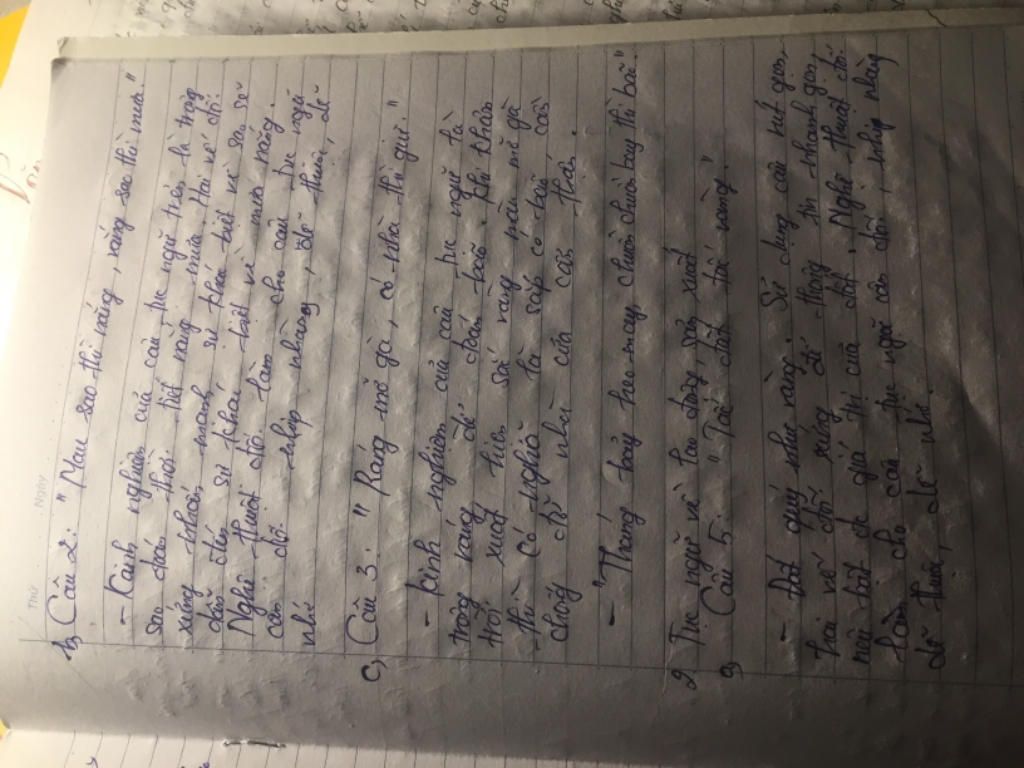 Thứ
Ngày
b, Câu 2: "Mau sao thì nắng, vắng sao thì mưa."
- Kinh nghiệm của câu tục ngữ trên là trông
sao đoán thời tiết nắng, mưa. Hai vế đối
xứng nhau, nhấn mạnh sự khác biệt về sao sẽ
dẫn đến sự khác biệt về mưa nắng.
Nghệ thuật đối làm cho câu tục ngữ
cân đối. nhịp nhàng, dễ thuộc, dễ
nhớ
c, Câu 3: "Ráng mỡ gà, có nhà thì giữ."
- kinh nghiệm của câu tục ngữ là
trông ráng để đoán bão. Khi chân
trời xuất hiện sắc vàng màu mỡ gà
thì có nghĩa là sắp có bão cần
chống đỡ nhà cửa cẩn thận.
- "Tháng bảy heo may chuồn chuồn bay thì bão."
2, Tục ngữ về lao động sản xuất
a, Câu 5: "Tấc đất tấc vàng."
- Đất quý như vàng. Sử dụng câu rút gọn,
hai vế đối xứng để thông tin nhanh gọn,
nổi bật được giá trị của đất. Nghệ thuật đối
làm cho câu tục ngữ cân đối, nhịp nhàng
dễ thuộc, dễ nhớ.